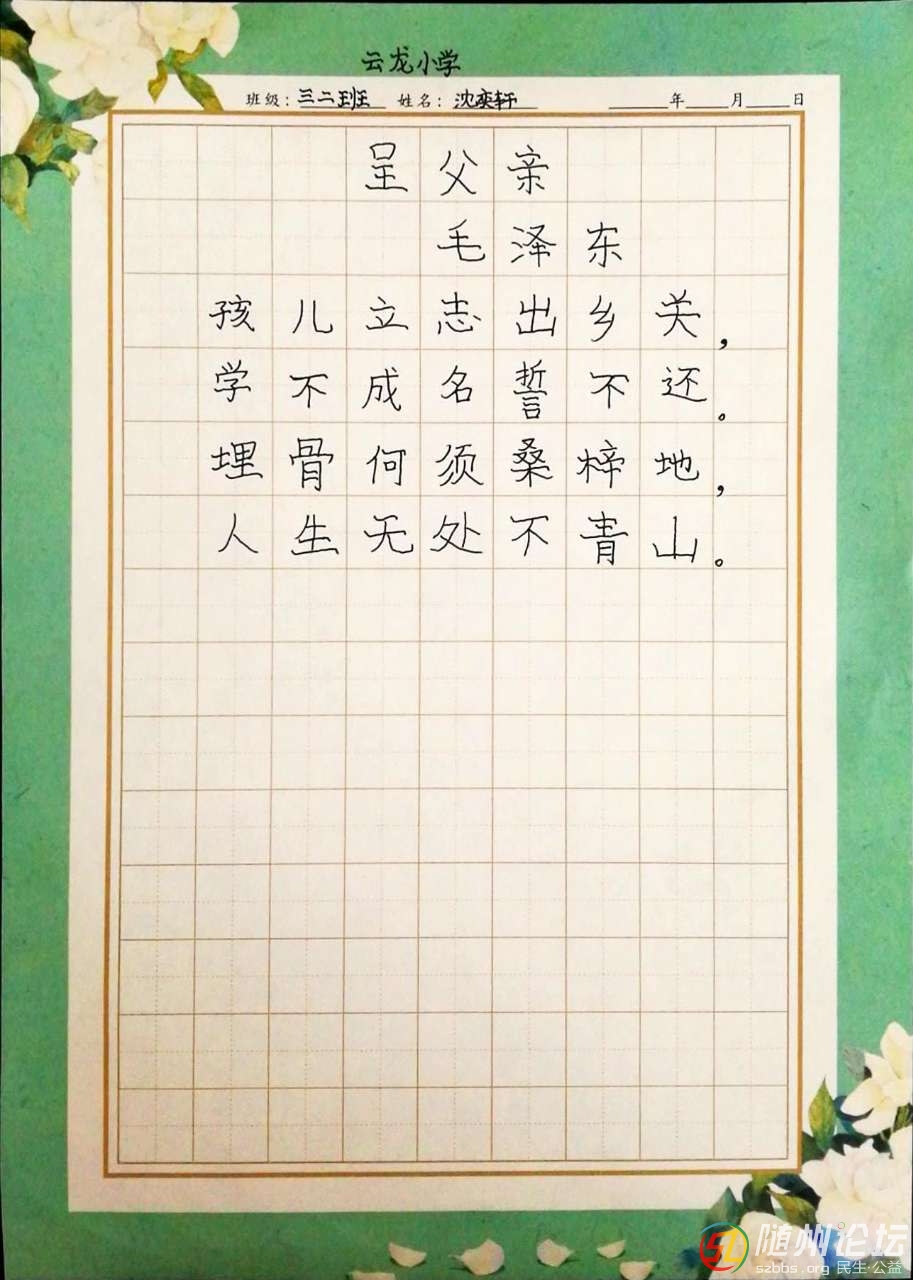 云龙小学
班级：三二班 姓名：沈奕轩 年 月 日
呈父亲
毛泽东
孩儿立志出乡关，
学不成名誓不还。
埋骨何须桑梓地，
人生无处不青山。
随州论坛
szbbs.org 民生·公益